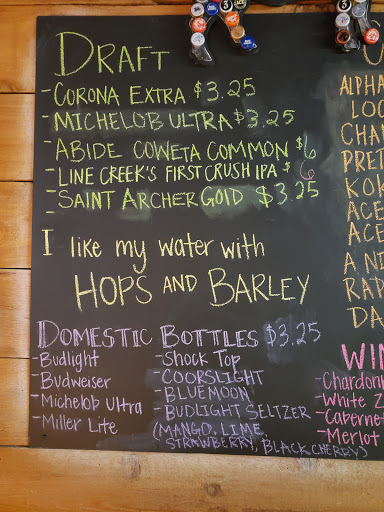 DRAFT
- CORONA EXTRA $3.25
- MICHELOB ULTRA $3.25
- ABIDE COWETA COMMON $6
- LINE CREEK'S FIRST CRUSH IPA $6
- SAINT ARCHER GOLD $3.25
-
I like my water with
HOPS AND BARLEY
DOMESTIC BOTTLES $3.25
- Budlight
- Budweiser
- Michelob Ultra
- Miller Lite
- SHOCK TOP
- COORSLIGHT
- BLUEMOON
- BUDLIGHT SELTZER
(MANGO, LIME,
STRAWBERRY, BLACK CHERRY)
U
ALPHA
LOC
CHAN
PRET
KOL
ACE
ACE
A NI
RAD
DA
WIN
- Chardon
- White Z
- Caberne
- Merlot